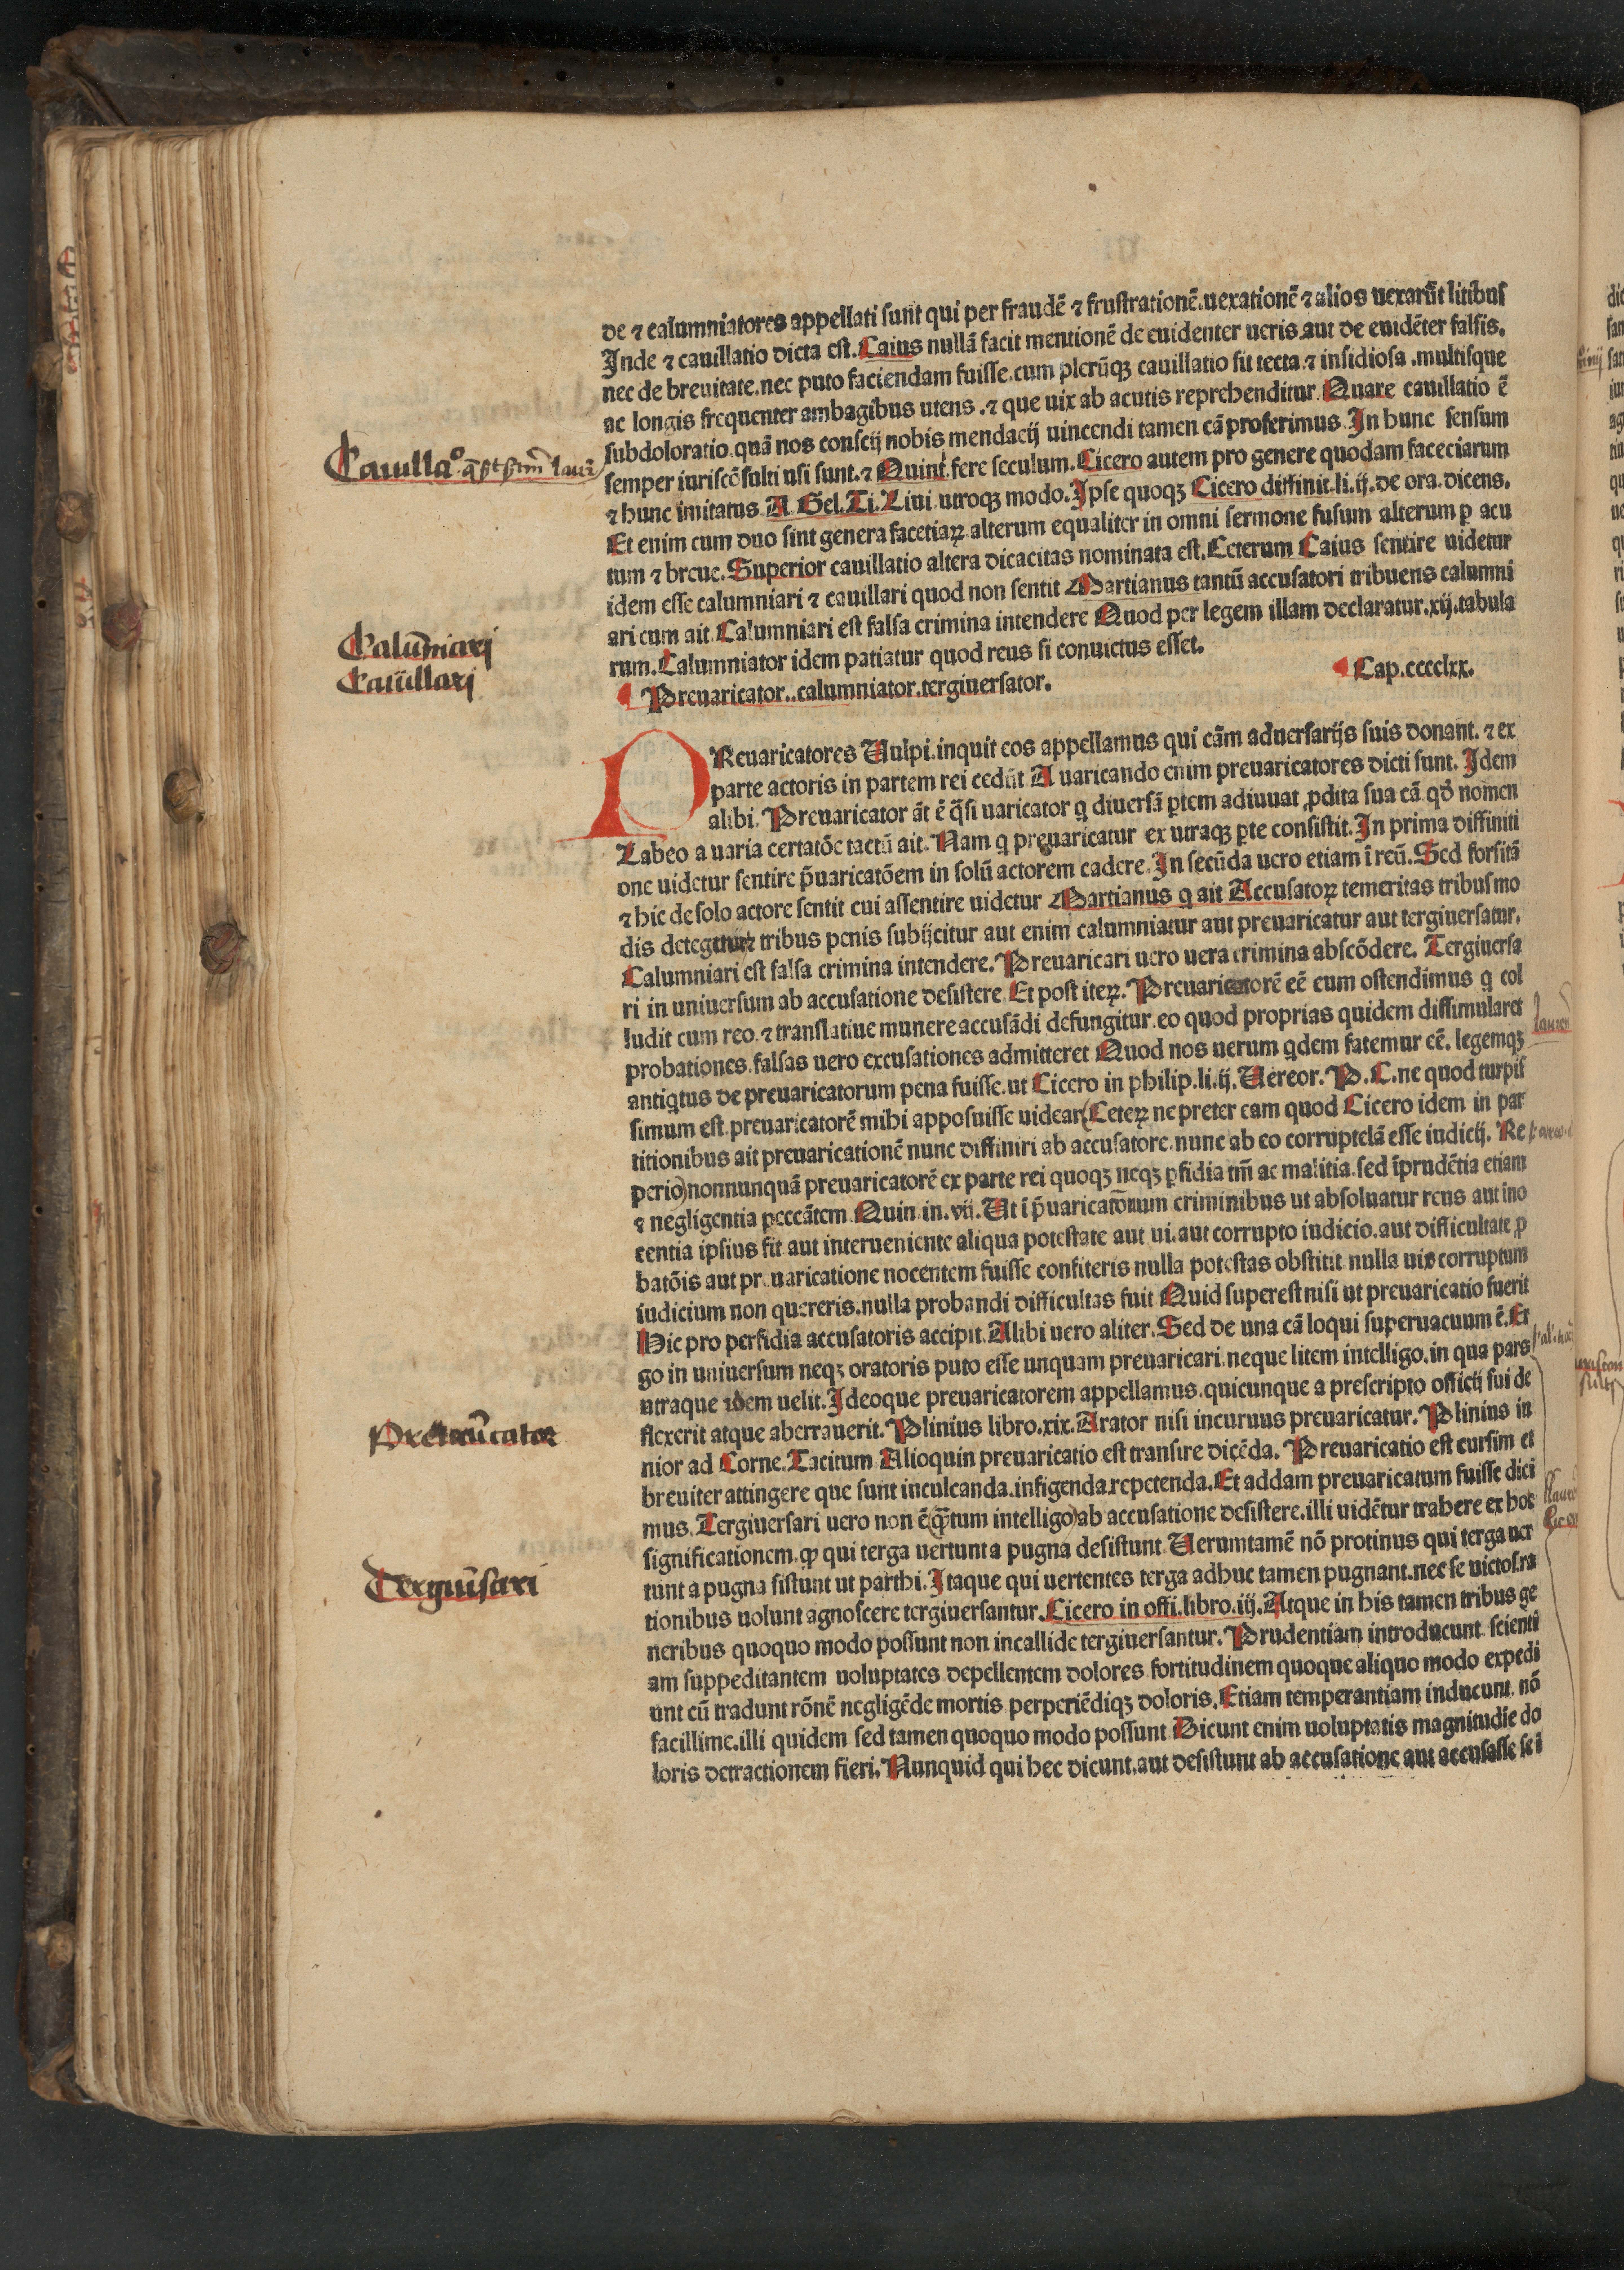 de ⁊ calumniatores appellati sunt qui per fraudē ⁊ frustrationē. uexationē ⁊ alios uexarūt litibus
Inde ⁊ cauillatio dicta est. Caius nullā facit mentionē de euidenter ueris aut de euidēter falsis.
nec de breuitate. nec puto faciendam fuisse. cum plerūqꝫ cauillatio sit tecta. ⁊ insidiosa. multisque
ac longis frequenter ambagibus utens. ⁊ que uix ab acutis reprehenditur. Quare cauillatio ē
subdoloratio quā nos conscij nobis mendacij uincendi tamen cā proferimus. In hunc sensum
Cauillaᵒ
semper iuriscōsulti usi sunt. ⁊ Quint. fere seculum. Cicero autem pro genere quodam faceciarum
⁊ hunc imitatus. A. Gel. Ti. Liui. utroqꝫ modo. Ipse quoqꝫ Cicero diffinit. li. ij. de ora. dicens.
Et enim cum duo sint genera facetiaꝝ alterum equaliter in omni sermone fusum alterum ꝑ acu
tum ⁊ breue. Superior cauillatio altera dicacitas nominata est. Ceterum Caius sentire uidetur
idem esse calumniari ⁊ cauillari quod non sentit Martianus tantū accusatori tribuens calumni
ari cum ait. Calumniari est falsa crimina intendere Quod per legem illam declaratur. xij. tabula
Calūmiari
rum. Calumniator idem patiatur quod reus si conuictus esset.
Cauillari
Preuaricator.. calumniator. tergiuersator. Cap. cccclxx.
PReuaricatores Vulpi. inquit eos appellamus qui cām aduersarijs suis donant. ⁊ ex
parte actoris in partem rei cedūt A uaricando enim preuaricatores dicti sunt. Idem
alibi. Preuaricator āt ē q̄si uaricator q diuersā ꝑtem adiuuat ꝓdita sua cā. qd̓ nomen
Labeo a uaria certatōe tactū ait. Nam q preuaricatur ex utraqꝫ ꝑte consistit. In prima diffiniti
one uidetur sentire p̄uaricatōem in solū actorem cadere. In secūda uero etiam ī reū. Sed forsitā
⁊ hic de solo actore sentit cui assentire uidetur Martianus q ait Accusatoꝝ temeritas tribus mo
dis detegitur ⁊ tribus penis subijcitur aut enim calumniatur aut preuaricatur aut tergiuersatur.
Calumniari est falsa crimina intendere. Preuaricari uero uera crimina abscōdere. Tergiuersa
ri in uniuersum ab accusatione desistere. Et post iteꝝ. Preuaricatorē eē eum ostendimus q col
ludit cum reo. ⁊ translatiue munere accusādi defungitur. eo quod proprias quidem dissimularet
probationes. falsas uero excusationes admitteret Quod nos uerum qdem fatemur eē. legemqꝫ
antiqtus de preuaricatorum pena fuisse. ut Cicero in philip. li. ij. Uereor. P. C. ne quod turpis
simum est. preuaricatorē mihi apposuisse uidear (Ceteꝝ ne preter eam quod Cicero idem in par
titionibus ait preuaricationē nunc diffiniri ab accusatore. nunc ab eo corruptelā esse iudicij. Re
perio) nonnunquā preuaricatorē ex parte rei quoqꝫ neqꝫ ꝑfidia tm̄ ac malitia. sed īprudētia etiam
⁊ negligentia peccātem. Quin. in. vij. Ut ī p̄uaricatōnum criminibus ut absoluatur reus aut ino
centia ipsius fit aut interueniente aliqua potestate aut ui. aut corrupto iudicio. aut difficultate ꝓ
batōis aut preuaricatione nocentem fuisse confiteris nulla potestas obstitit. nulla uis corruptum
iudicium non quereris. nulla probandi difficultas fuit Quid superest nisi ut preuaricatio fuerit
Hic pro perfidia accusatoris accipit. Alibi uero aliter. Sed de una cā loqui superuacuum ē. Er
go in uniuersum neqꝫ oratoris puto esse unquam preuaricari. neque litem intelligo. in qua pars
utraque idem uelit. Ideoque preuaricatorem appellamus. quicunque a prescripto officij sui de
flexerit atque aberrauerit. Plinius libro. xix. Arator nisi incuruus preuaricatur. Plinius iu
nior ad Corne. Tacitum. Alioquin preuaricatio est transire dicēda. Preuaricatio est cursim et
breuiter attingere que sunt inculcanda. infigenda. repetenda. Et addam preuaricatum fuisse dici
mus. Tergiuersari uero non ē (q̄tum intelligo) ab accusatione desistere. illi uidētur trahere ex hoc
significationem. ꝙ qui terga uertunt a pugna desistunt. Uerumtamē nō protinus qui terga uer
Tergiūsari
tunt a pugna sistunt ut parthi. Itaque qui uertentes terga adhuc tamen pugnant. nec se uictos. ra
tionibus uolunt agnoscere tergiuersantur. Cicero in offi. libro. iij. Atque in his tamen tribus ge
neribus quoquo modo possunt non incallide tergiuersantur. Prudentiam introducunt scienti
am suppeditantem uoluptates depellentem dolores fortitudinem quoque aliquo modo expedi
unt cū tradunt rōnē negligēde mortis perperiēdiqꝫ doloris. Etiam temperantiam inducunt. nō
facillime. illi quidem sed tamen quoquo modo possunt Dicunt enim uoluptatis magnitudīe do
loris detractionem fieri. Nunquid qui hec dicunt. aut desistunt ab accusatione aut accusasse se